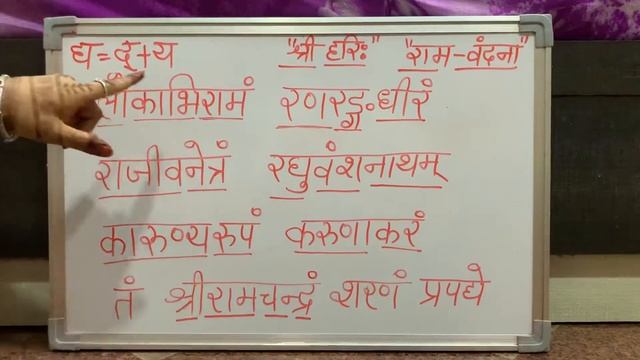 द्य=द्+य "श्री हरिः" "राम-वंदना"
लोकाभिरामं रणरङ्गधीरं
राजीवनेत्रं रघुवंशनाथम्
कारुण्यरुपं करुणाकरं
तं श्रीरामचन्द्रं शरणं प्रपद्ये